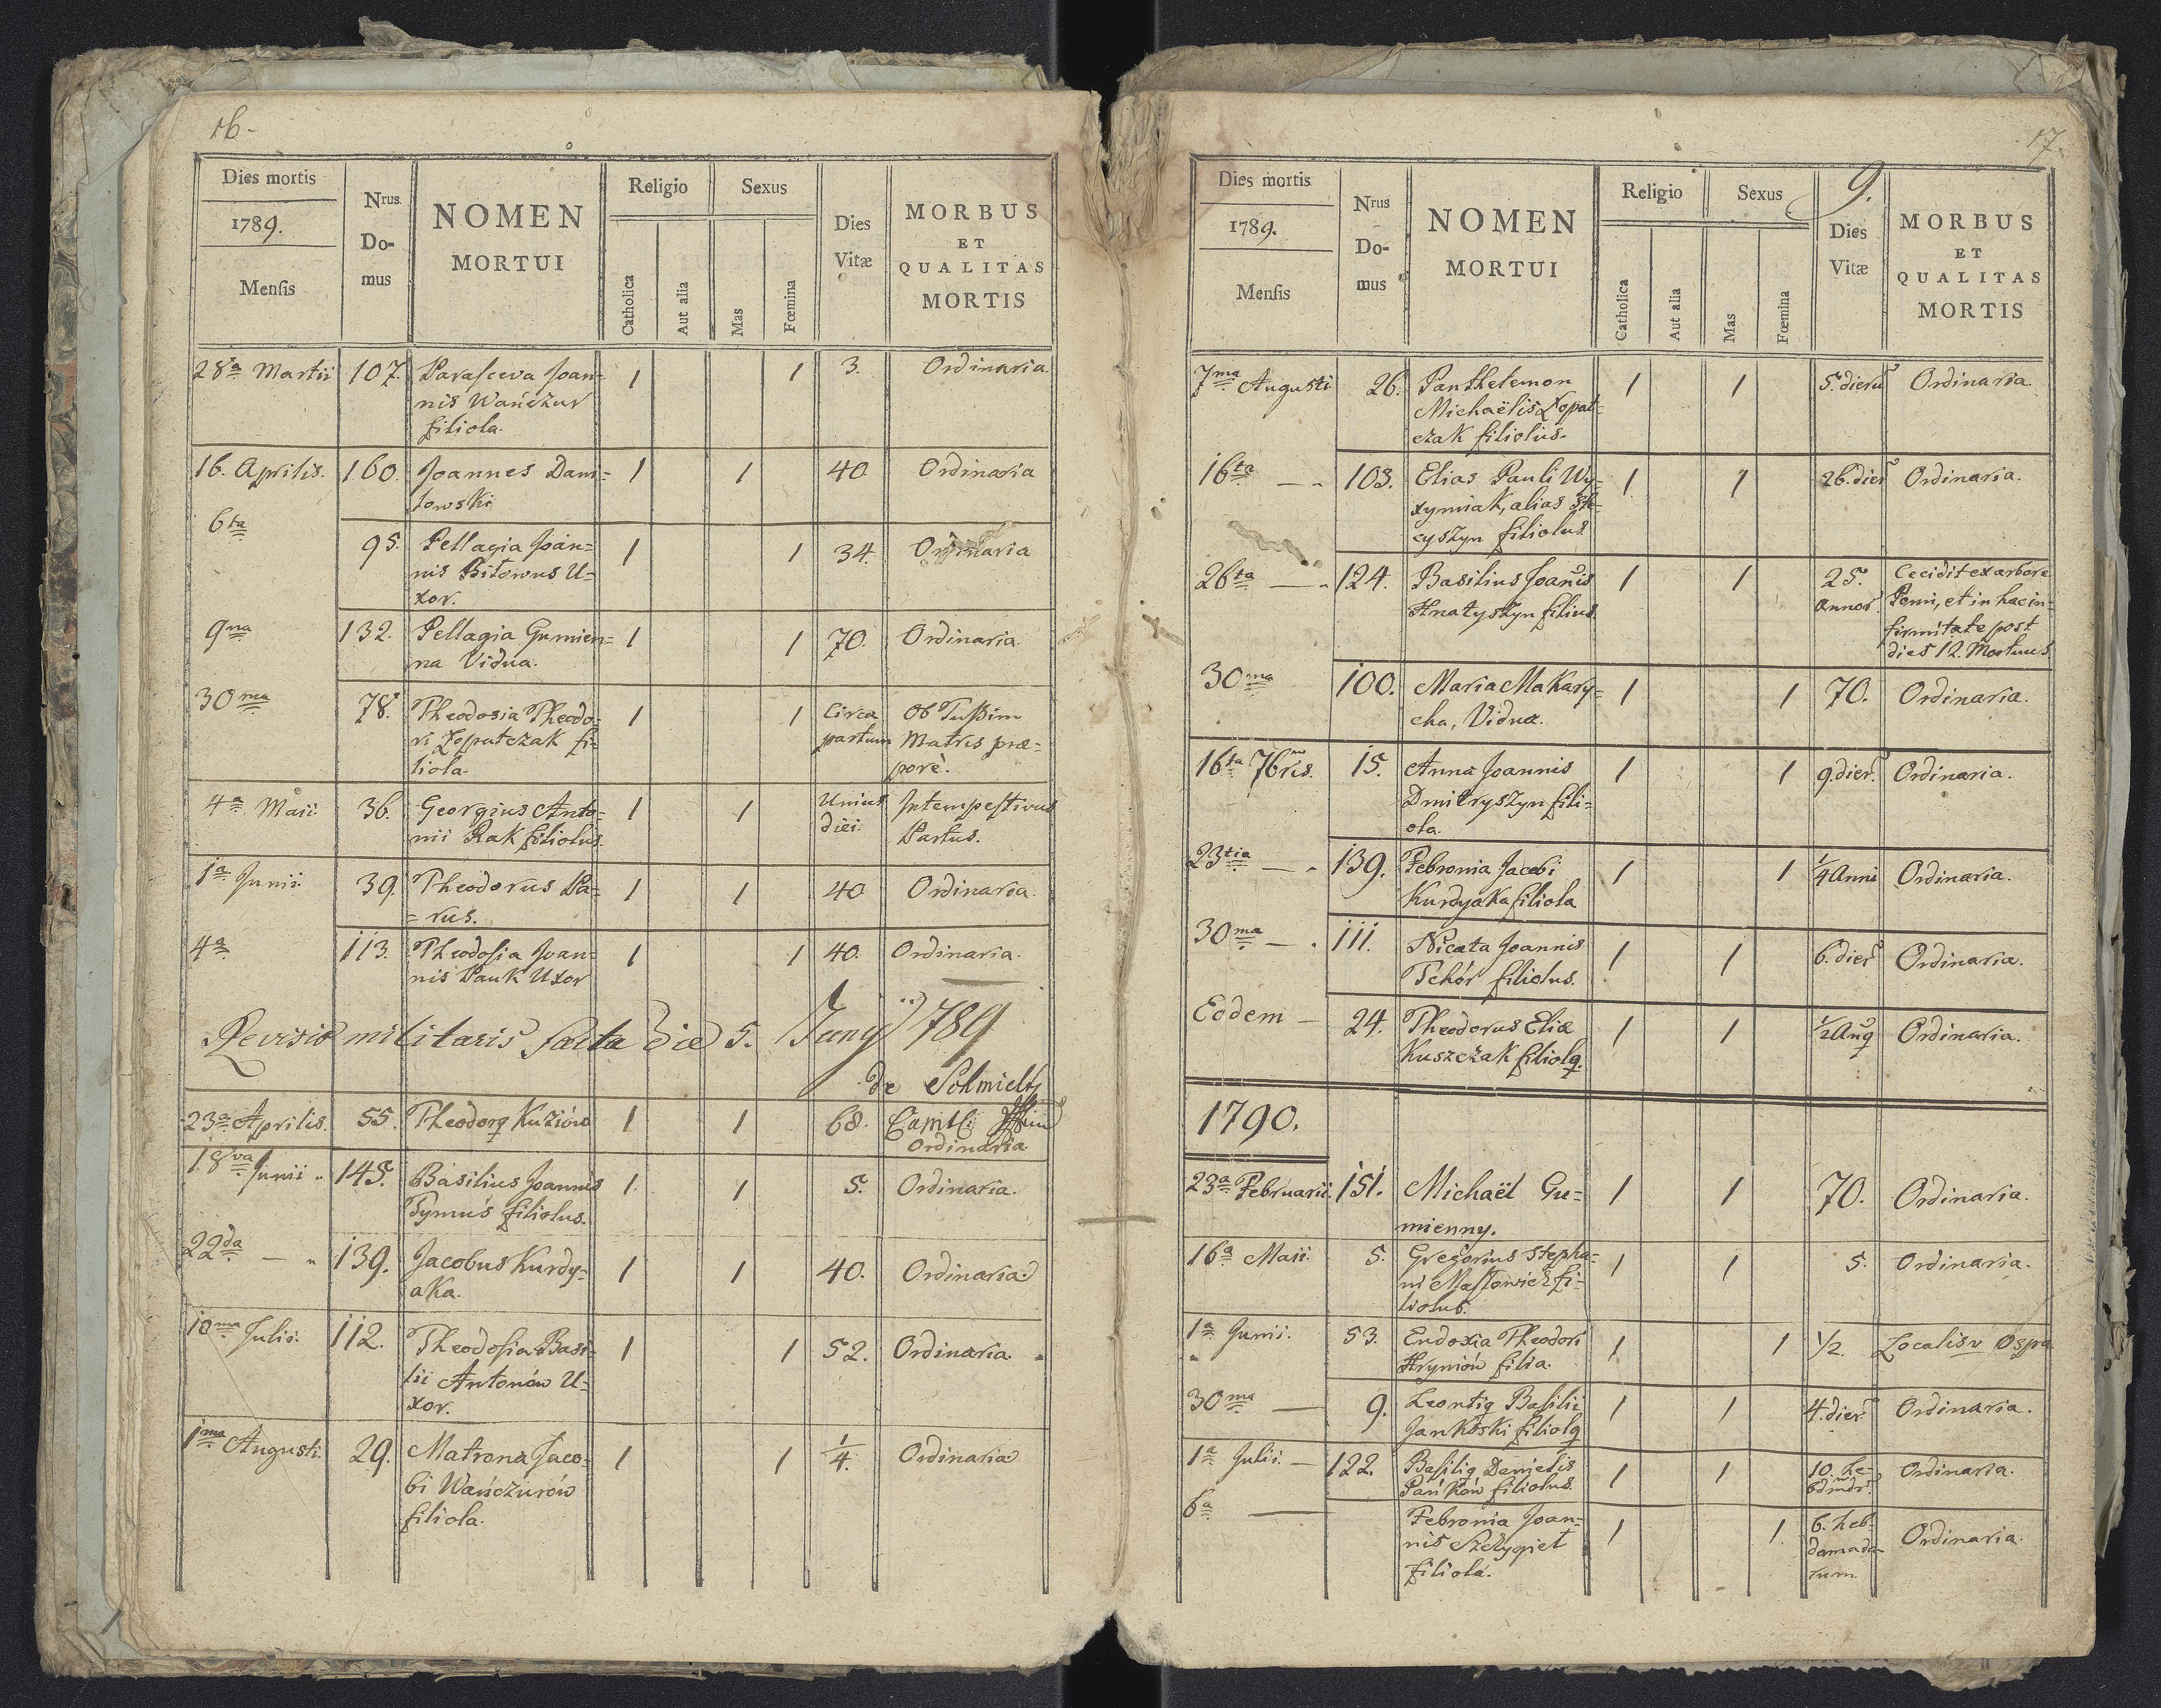 16.
Dies mortis
1789.
Mensis
Nrus
Do-
mus
NOMEN
MORTUI
Religio
Catholica
Aut alia
Sexus
Mas
Fœmina
Dies
Vitæ
MORBUS
ET
QUALITAS
MORTIS
28a Martii 107. Parasceva Joan= 1 1 3. Ordinaria.
nis Wańczur
filiola.
16. Aprilis. 160. Joannes Dani= 1 1 40 Ordinaria
lowski
6ta 95. Pellagia Joan= 1 1 34. Ordinaria
nis Bitowus U=
xor.
9na 132. Pellagia Gumien= 1 1 70. Ordinaria.
na Vidua.
30ma 78. Theodosia Theodo= 1 1 Circa partum Ob Tussim
ri Łopatczak fi= Matris præ=
liola. pore.
4a Maii 36. Georgius Anto= 1 1 Unius diei. Intempestivus
nii Rak filiolus. Partus.
1a Junii 39. Theodorus Pa= 1 1 40 Ordinaria.
=rus.
4a 113. Theodosia Joan= 1 1 40. Ordinaria.
nis Pauk Uxor
Revisio militaris facta die 5. Juny 789
de Schmieltz
23a Aprilis. 55. Theodorq Kuziów 1 1 68.
Ordinaria
18va Junii 145. Basilius Joannis 1 1 5. Ordinaria.
Tymuś filiolus.
22da — 139. Jacobus Kurdy= 1 1 40. Ordinaria
aka.
10ma Julii 112. Theodosia Basi= 1 1 52. Ordinaria.
lii Antonów U=
xor.
1ma Augusti. 29. Matrona Jaco= 1 1 1/4. Ordinaria
bi Wańczurów
filiola.
17.
9.
Dies mortis
1789.
Mensis
Nrus
Do-
mus
NOMEN
MORTUI
Religio
Catholica
Aut alia
Sexus
Mas
Fœmina
Dies
Vitæ
MORBUS
ET
QUALITAS
MORTIS
7ma Augusti 26. Panthelemon 1 1 5. dieru Ordinaria
Michaëlis Łopat=
czak filiolus.
16ta — 103. Elias Pauli Wy= 1 1 26. dier Ordinaria.
xymiak, alias Ste=
cyszyn filiolus
26ta — 124. Basilius Joanis 1 1 25. Cecidit ex arbore
Hnatyszyn filius. annor. Pomi, et in hac in=
firmitate post
dies 12. Mortuus
30ma 100. Maria Makary= 1 1 70. Ordinaria.
cha, Vidua.
16ta 7bris. 15. Anna Joannis 1 1 9. dier. Ordinaria.
Dmitryszyn fili=
ola.
23tia — 139. Febronia Jacobi 1 1 1/4 Anni Ordinaria.
Kurdyaka filiola
30ma — 111. Nicata Joannis 1 1 6. dier Ordinaria.
Tchór filiolus.
Eodem — 24. Theodorus Eliæ 1 1 1/2 Ordinaria.
Kuszczak filiolq.
1790.
23a Februarii. 151. Michaël Gu= 1 1 70. Ordinaria.
mienny.
16a Maii. 5. Gregorius Stepha= 1 1 5. Ordinaria.
ni Masłowicz fi=
liolus.
1a Junii. 53. Eudoxia Theodori 1 1 1/2. Localis v Ospa
Hryniów filia.
30ma — 9. Leontiq Basilii 1 1 4. dier. Ordinaria.
Jankoski filiolq
1a Julii. — 122. Basiliq Danielis 1 1 10. he= Ordinaria.
Pańków filiolus. bdmdr.
6a — Febronia Joan= 1 1 6. heb= Ordinaria.
nis Szczygiel domada=
filiola. rum.